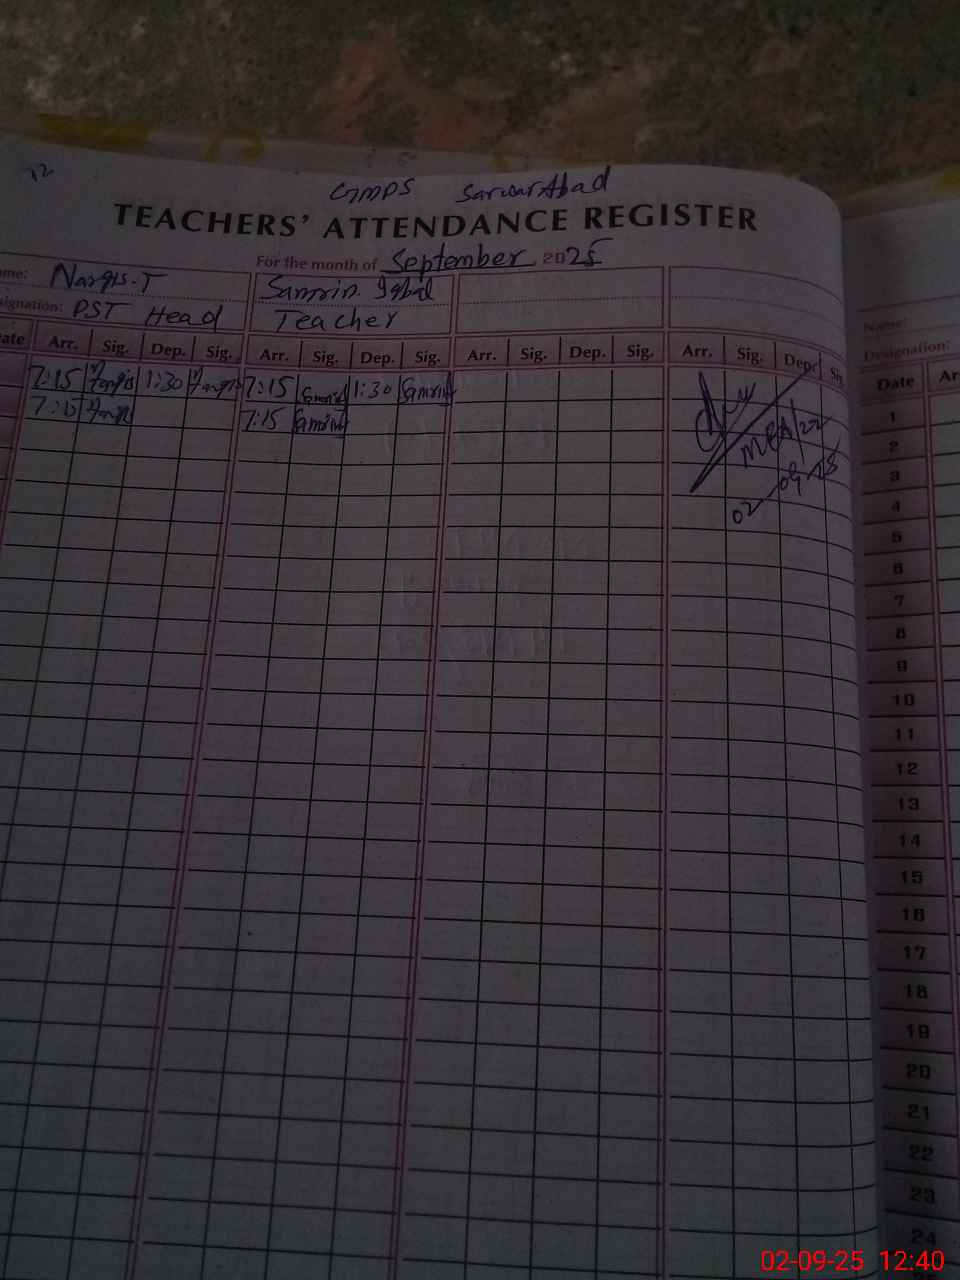 12
GMPS Sarwar Abad
TEACHERS' ATTENDANCE REGISTER
For the month of September 2025
ame: Nargis.T Samrin Iqbal
signation: PST Head Teacher
ate Arr. Sig. Dep. Sig. Arr. Sig. Dep. Sig. Arr. Sig. Dep. Sig. Arr. Sig. Dep. Si
7:15 Nargis 1:30 Nargis 7:15 Samrin 1:30 Samrin
7:15 Nargis 7:15 Samrin
MEA/22
02-09-25
Name:
Designation:
Date Ar
1
2
3
4
5
6
7
8
9
10
11
12
13
14
15
16
17
18
19
20
21
22
23
24
02-09-25 12:40